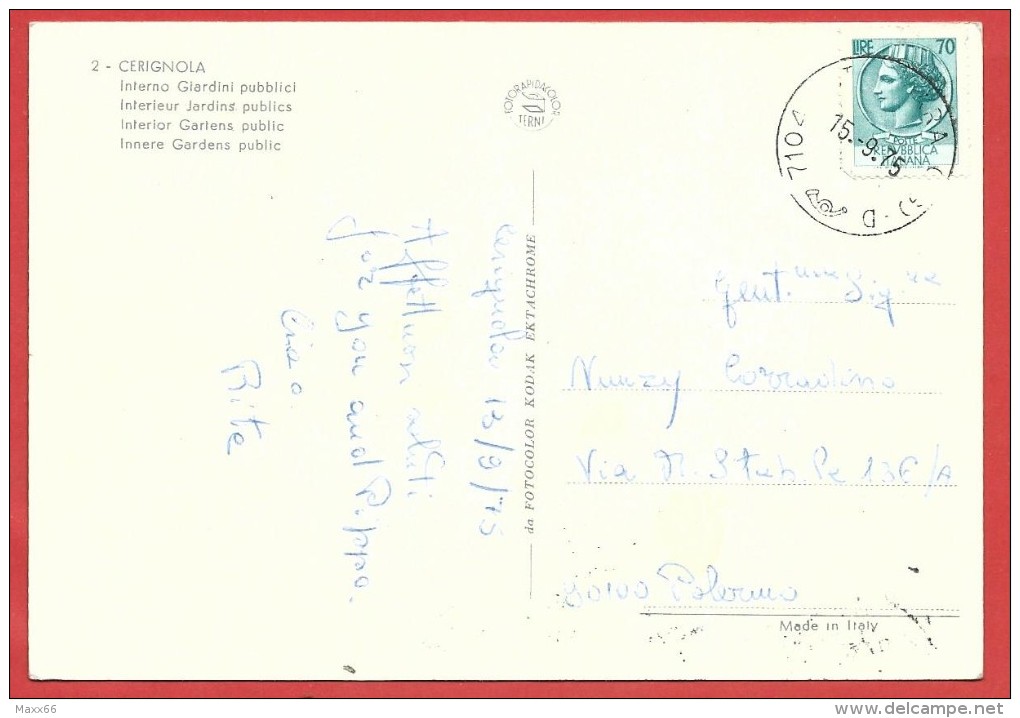 2 - CERIGNOLA
Interno Giardini pubblici
Interieur Jardins publics
Interior Gartens public
Innere Gardens public
FOTORAPIDACOLOR
TERNI
LIRE 70
POSTE
REPVBBLICA
ITALIANA
7104
15.-9.75
Cerignola 13/9/75
Affettuosi saluti
for you and Pippo.
Ciao
Rita
da FOTOCOLOR KODAK EKTACHROME
Gent.ma Sig.na
Nunzy Corradino
Via
136/A
90100 Palermo
Made in Italy
Maxx66
delcampe.net